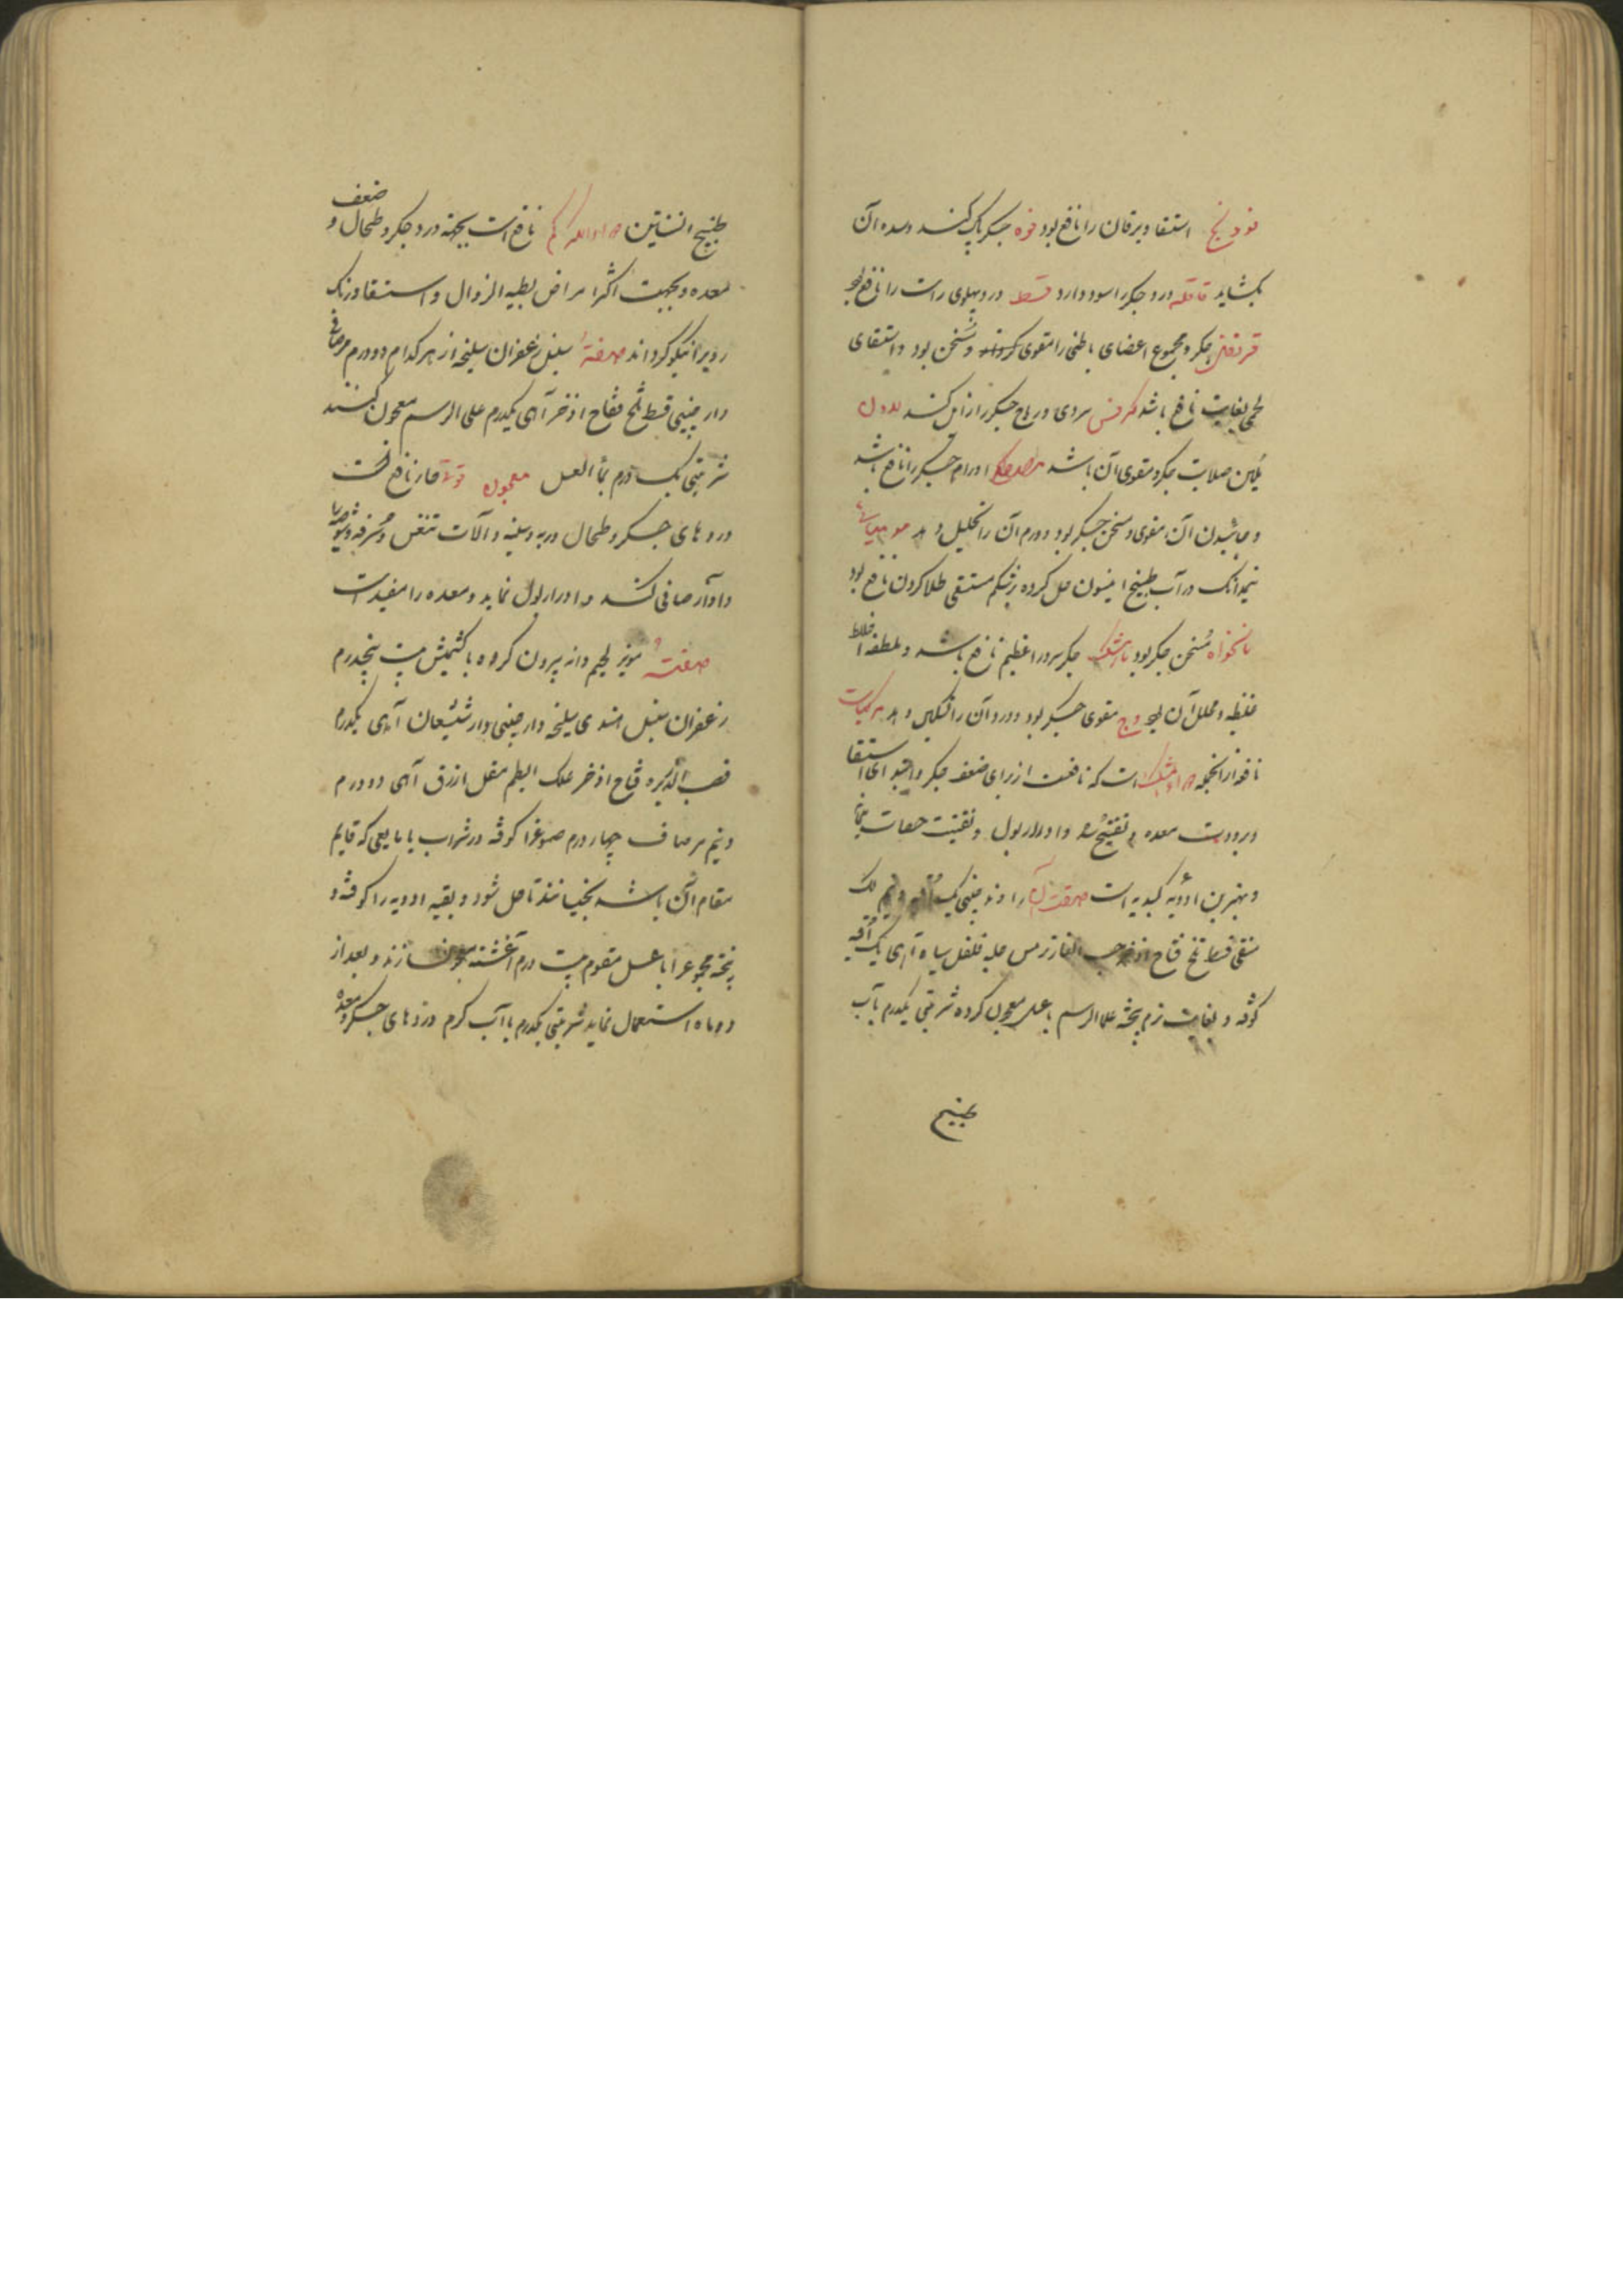 فودنج استسقا و یرقان را نافع بود فوه جگر پاک کند و سده آن
بکشاید قاقله درد جگر را سود دارد قسط درد پهلوی راست را نافع بود
قرنفل جگر و مجموع اعضای باطنی را مقوی و مسخن بود و استسقای
لحمی بغایت نافع باشد کرفس سردی و ریاح جگر را زایل کند
ملین صلابت جگر و مقوی آن باشد مصطکی اورام جگر را نافع باشد
آن مقوی و مسخن جگر بود و ورم آن را تحلیل دهد مومیائی
نیمدانک در آب طبیخ انیسون حل کرده بر شکم مستسقی طلا کردن نافع بود
نانخواه مسخن جگر بود جگر سرد را عظیم نافع باشد و ملطف اخلاط
غلیظه و محلل آن بود وج مقوی جگر بود و درد آن را تسکین دهد مرکبات
نافعه از انجمله است که نافعست از برای ضعف جگر و انواع استسقا
و برودت معده و تفتیح سده و ادرار بول و تفتیت حصات مثانه
و بهترین ادویه کبدیه است صفت آن راوند چینی یک و نیم لک
منقی قسط تلخ فقاح اذخر حب الغار ترمس حلبه فلفل سیاه آهی یک اوقیه
کوفته و بغایت نرم بیخته علی الرسم با عسل معجون کرده شربتی یکدرم بآب
طبیخ
طبیخ افسنتین نافع است بجهة درد جگر و طحال و ضعف
معده و بجهت اکثر امراض بطیه الزوال و استسقا و رنک
روی را نیکو کرداند صفته سنبل زعفران سلیخه از هر کدام دو درم مر صافی
دار چینی قسط تلخ فقاح اذخر آهی یکدرم علی الرسم معجون کنند
شربتی یک درم بماء العسل معجون نافع است
دردهای جگر و طحال و ریه و سینه و آلات تنفس و سرفه
و آواز صافی کند و ادرار بول نماید و معده را مفید است
صفته مویز لحیم دانه بیرون کرده یا کشمش بیست پنجدرم
زعفران سنبل هندی سلیخه دارچینی دارشیشعان آهی یکدرم
قصب الذریره فقاح اذخر علک البطم مقل ازرق آهی دو درم
و نیم مر صاف چهار درم صموغ را کوفته در شراب یا مایعی که قایم
مقام آن باشد بخیسانند تا حل شود و بقیه ادویه را کوفته و
بیخته مجموع را با عسل مقوم بیست درم آغشته معجون سازند و بعد از
دو ماه استعمال نمایند شربتی یکدرم با آب کرم دردهای جگر و معده